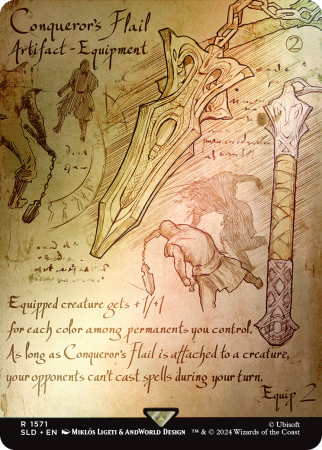 Conqueror's Flail
2
Artifact - Equipment
Equipped creature gets +1/+1
for each color among permanents you control.
As long as Conqueror's Flail is attached to a creature,
your opponents can't cast spells during your turn.
Equip 2
R 1571
SLD • EN Miklós Ligeti & AndWorld Design
© Ubisoft
™ & © 2024 Wizards of the Coast